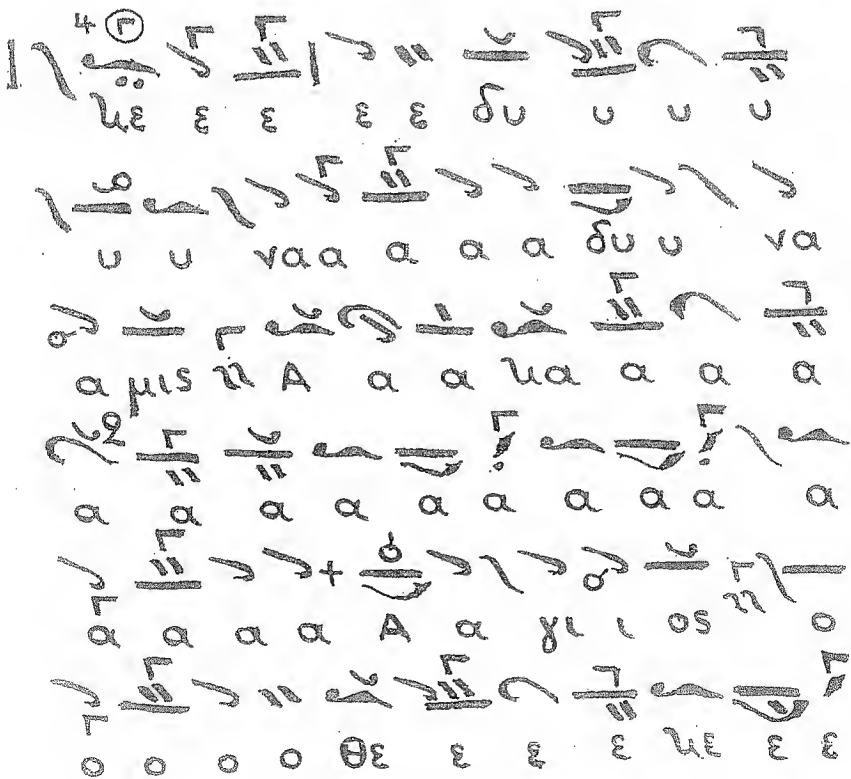 4 Γ
κε ε ε ε ε δυ υ υ υ
υ υ ναα α α α δυ υ να
α μις Α α α κα α α α
α α α α α α α α α α
α α α α Α α γι ι ος ο
ο ο ο ο Θε ε ε ε κε ε ε